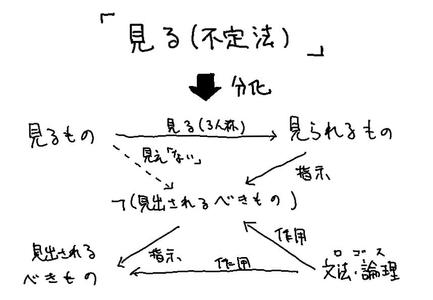 「見る(不定法)」
分化
見るもの
見る(3人称)
見られるもの
見え「ない」
指示
¬(見出されるべきもの)
見出される
べきもの
指示
作用
作用
ロゴス
文法・論理